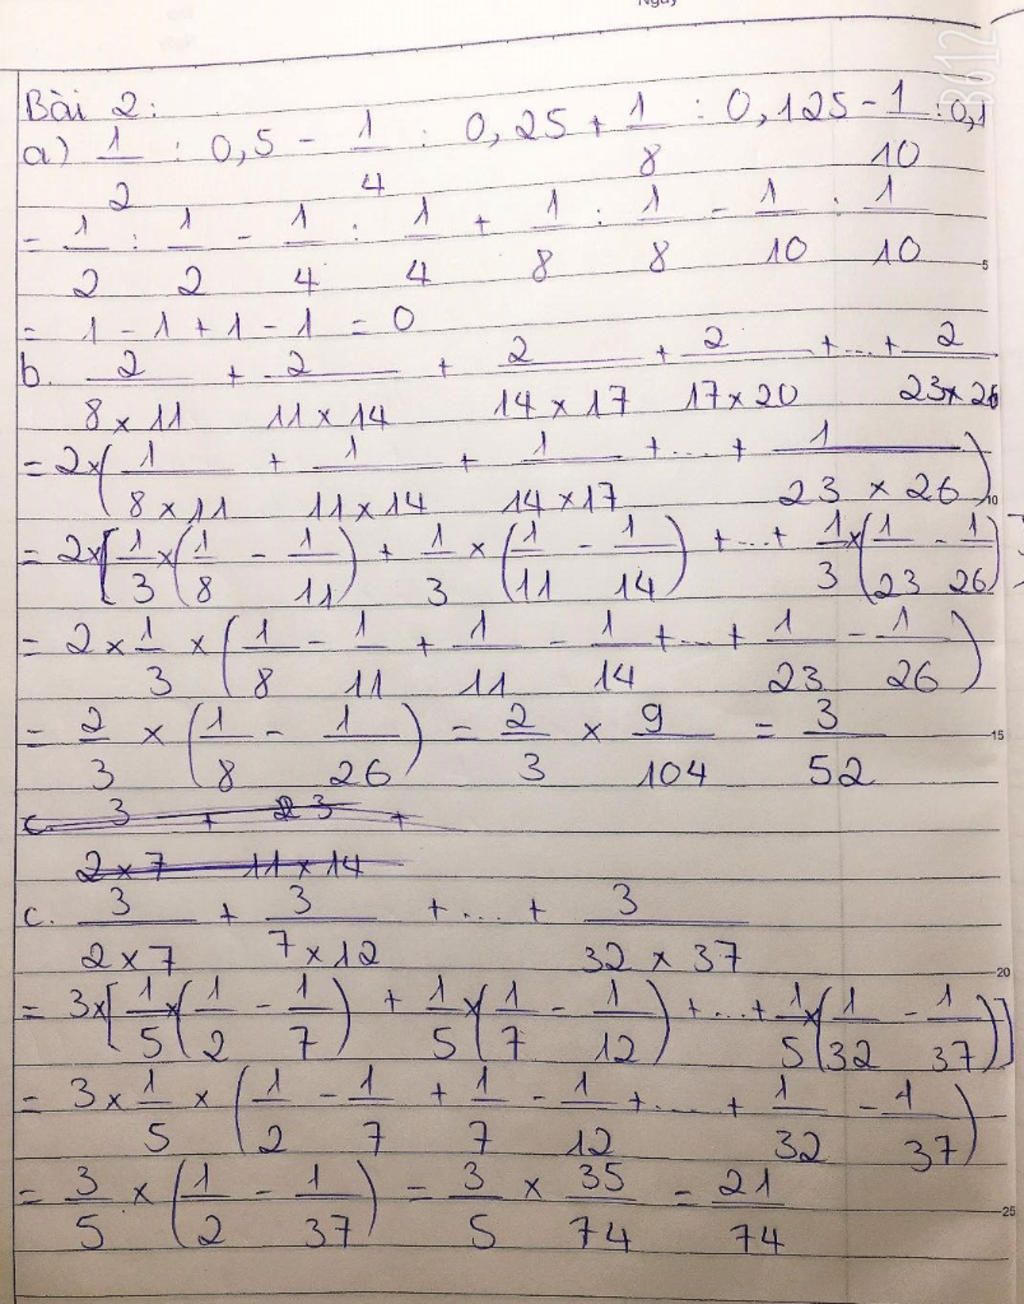 Ngày
B612
Bài 2:
a) 1/2 : 0,5 - 1/4 : 0,25 + 1/8 : 0,125 - 1/10 : 0,1
= 1/2 : 1/2 - 1/4 : 1/4 + 1/8 : 1/8 - 1/10 : 1/10
5
= 1 - 1 + 1 - 1 = 0
b. 2/(8 × 11) + 2/(11 × 14) + 2/(14 × 17) + 2/(17 × 20) + ... + 2/(23 × 26)
= 2 × (1/(8 × 11) + 1/(11 × 14) + 1/(14 × 17) + ... + 1/(23 × 26))
10
= 2 × [1/3 × (1/8 - 1/11) + 1/3 × (1/11 - 1/14) + ... + 1/3 × (1/23 - 1/26)]
= 2 × 1/3 × (1/8 - 1/11 + 1/11 - 1/14 + ... + 1/23 - 1/26)
= 2/3 × (1/8 - 1/26) = 2/3 × 9/104 = 3/52
15
c. 3/(2 × 7) + 3/(11 × 14) +
c. 3/(2 × 7) + 3/(7 × 12) + ... + 3/(32 × 37)
20
= 3 × [1/5 × (1/2 - 1/7) + 1/5 × (1/7 - 1/12) + ... + 1/5 × (1/32 - 1/37)]
= 3 × 1/5 × (1/2 - 1/7 + 1/7 - 1/12 + ... + 1/32 - 1/37)
= 3/5 × (1/2 - 1/37) = 3/5 × 35/74 = 21/74
25